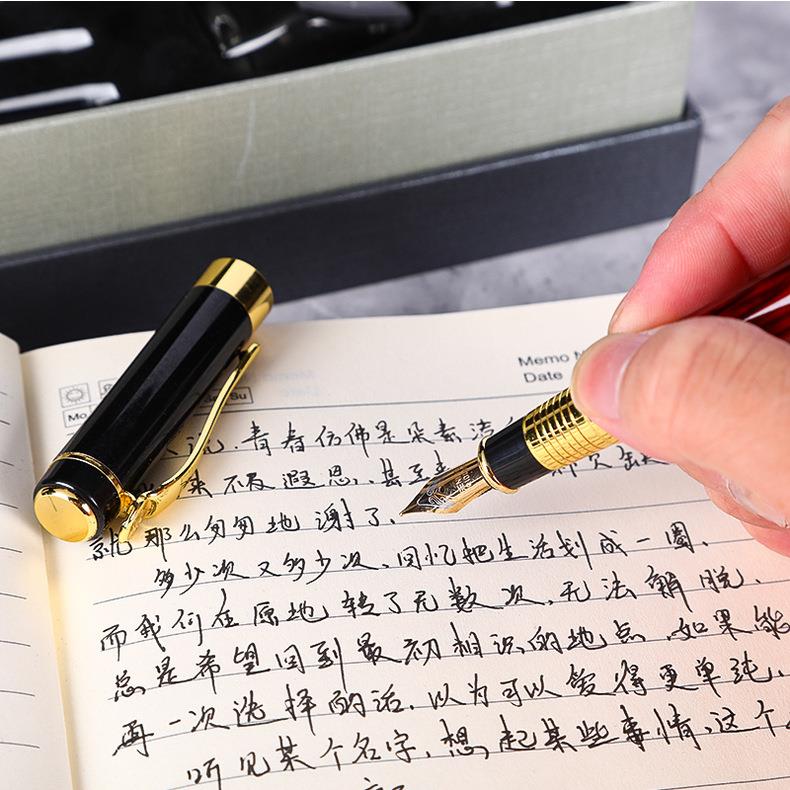 Memo
Date
Mo Su
说，青春仿佛是朵素洁
来不及遐思，甚至
就那么匆匆地谢了。
多少次又多少次，回忆把生活划成一圈，
而我们在原地转了无数次，无法解脱，
总是希望回到最初相识的地点，如果能
再一次选择的话，以为可以爱得更单纯。
听见某个名字，想起某些事情，这个